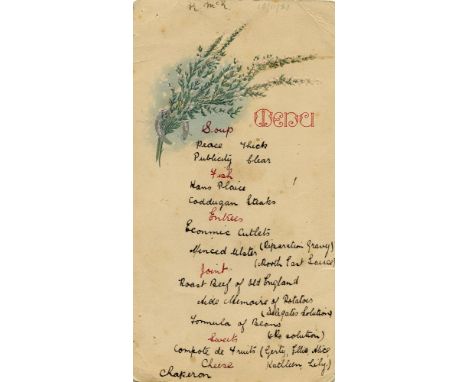 R. McK
Menu
Soup
Peace Thick
Publicity Clear
Fish
Hans Plaice
Coddugan Steaks
Entrées
Economic Cutlets
Minced Ulster (Reparation Gravy)
(North East Sauce)
Joint
Roast Beef of Old England
Aide Memoire of Potatoes
(Delegates Solution)
Formula of Beans
(solution)
Sweets
Compote de Fruits (Gerty, Ellie, Alice
Kathleen Lily)
Cheese
Chaperon